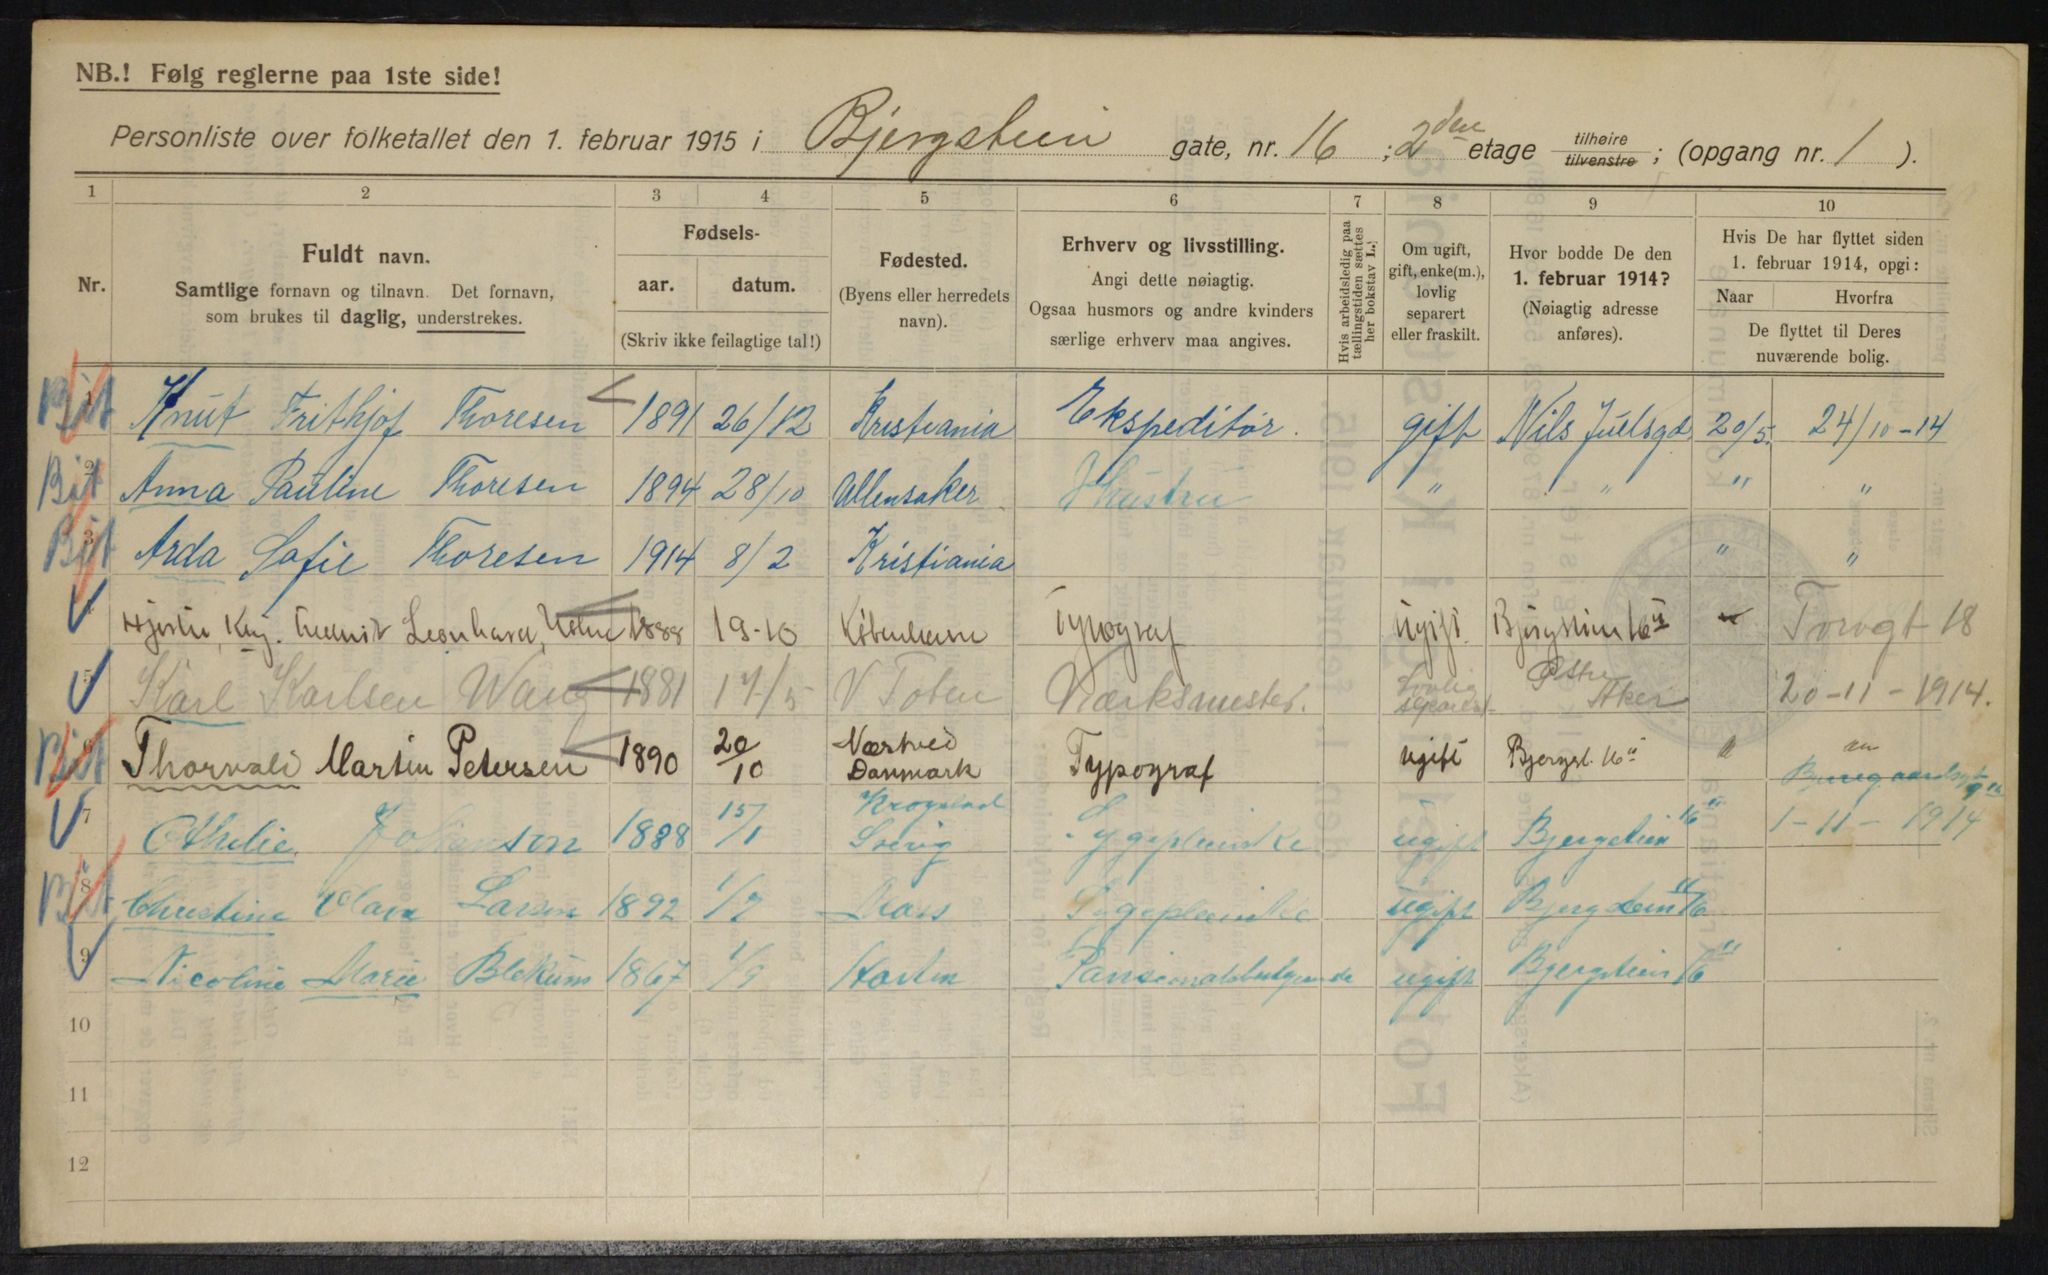 NB.! Følg reglerne paa 1ste side!
Personliste over folketallet den 1. februar 1915 i Bjergstein gate, nr. 16 ; 2den etage tilhøire tilvenstre ; (opgang nr. 1 ).
1 2 3 4 5 6 7 8 9 10
Nr.
Fuldt navn.
Samtlige fornavn og tilnavn. Det fornavn,
som brukes til daglig, understrekes.
Fødsels-
aar. datum.
(Skriv ikke feilagtige tal!)
Fødested.
(Byens eller herredets
navn).
Erhverv og livsstilling.
Angi dette nøiagtig.
Ogsaa husmors og andre kvinders
særlige erhverv maa angives.
Hvis arbeidsledig paa
tællingstiden sættes
her bokstav L.
Om ugift,
gift, enke(m.),
lovlig
separert
eller fraskilt.
Hvor bodde De den
1. februar 1914?
(Nøiagtig adresse
anføres).
Hvis De har flyttet siden
1. februar 1914, opgi:
Naar Hvorfra
De flyttet til Deres
nuværende bolig.
1 Knut Frithjof Thoresen 1891 26/12 Kristiania Ekspeditør. gift Nils Juelsgd 20/5. 24/10-14
2 Anna Pauline Thoresen 1894 28/10 Ullensaker Hustru " " " "
3 Arda Sofie Thoresen 1914 8/2 Kristiania " "
4 Kaj. Leonhard 1888 19-10 København Typograf ugift. Bjergstien 16 II Torvgt 18
5 Karl Karlsen Wang 1881 17/5 V Toten Værksmester. Lovlig separert Østre Aker 20-11-1914.
6 Thorvald Martin Petersen 1890 20/10 Næstved Danmark Typograf ugift Bjergst. 16 II
7 Othelie Johanson 1888 15/1 Krogstad Sygepleierske ugift Bjergstien 16 II 1-11-1914
8 Christine Larsen 1892 1/7 Moss Sygepleierske ugift Bjergstein 16 II
9 Nicoline Marie Blekum 1867 1/9 ugift Bjergstien 16 II
10
11
12